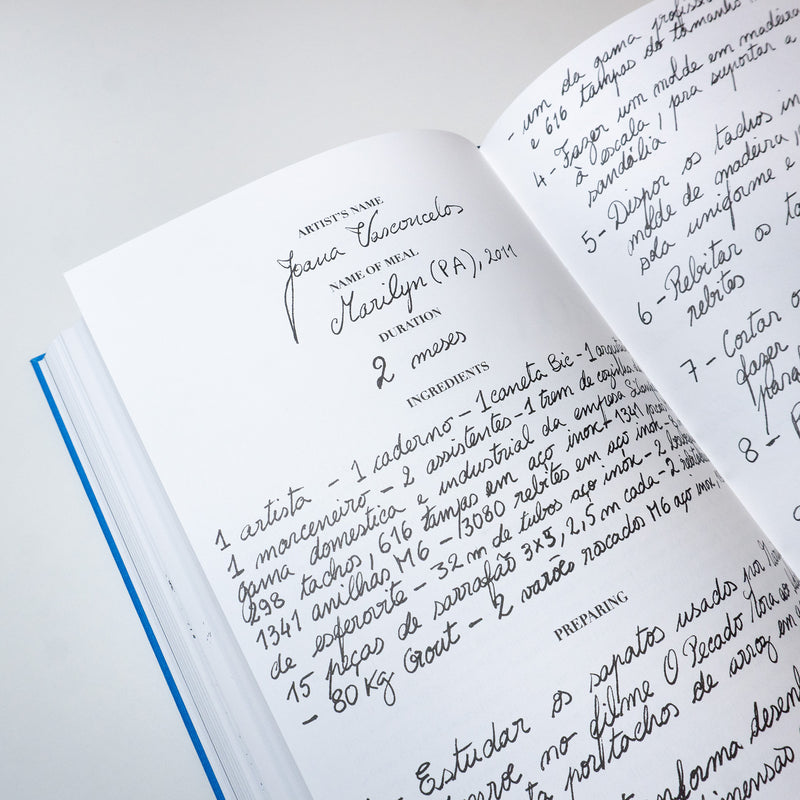 ARTIST'S NAME
Joana Vasconcelos
NAME OF MEAL
Marilyn (PA), 2011
DURATION
2 meses
INGREDIENTS
1 artista - 1 caderno - 1 caneta Bic - 1
1 marceneiro - 2 assistentes - 1 trem de cozinha
gama domestica e industrial da empresa
298 tachos, 616 tampas em aço inox - 1341
1341 anilhas M6 - 13080 rebites em aço inox -
de esferovite - 32 m de tubos aço inóx - 2
15 peças de sarrafão 3x3, 2,5 m cada - 2
- 80 Kg Grout - 2 varões roscado M6 aço inox
PREPARING
Estudar os sapatos usados por
no filme O Pecado
por tachos de arroz em
forma
- um da gama
e 616 tampas do tamanho
4 - Fazer um molde em madeira
à escala, pra suportar a
sandália
5 - Dispor os tachos
molde de madeira,
sola uniforme e
6 - Rebitar os
rebites
7 - Cortar
fazer
para
8 -